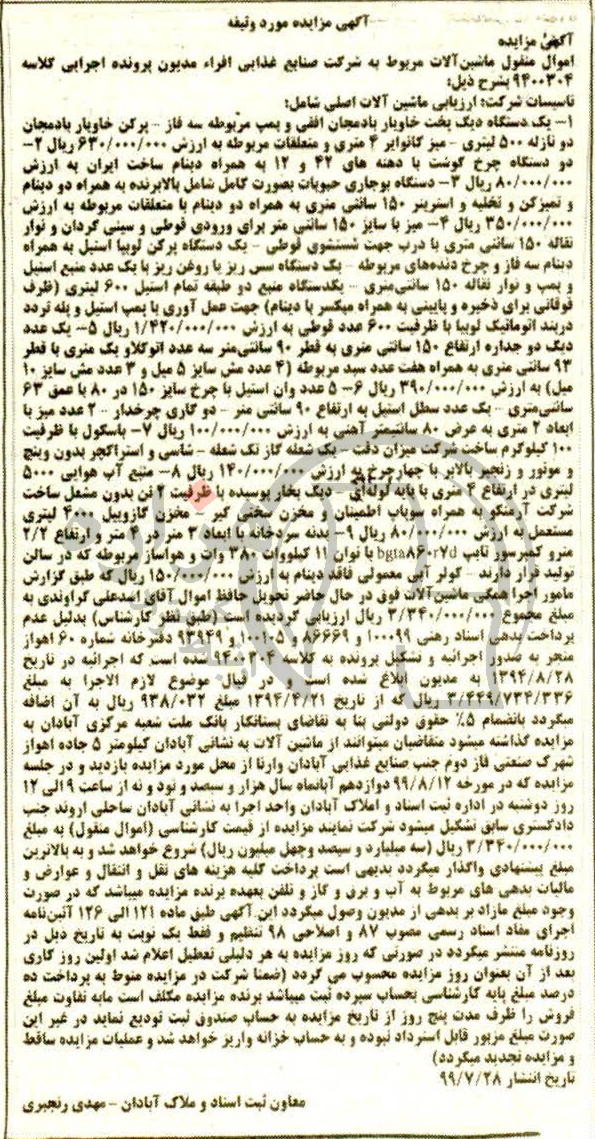 آگهی مزایده مورد وثیقه
آگهی مزایده
اموال منقول ماشین‌آلات مربوط به شرکت صنایع غذایی افراء مدیون پرونده اجرایی کلاسه
۹۴۰۰۳۰۴ بشرح ذیل:
تاسیسات شرکت: ارزیابی ماشین آلات اصلی شامل:
۱- یک دستگاه دیگ پخت خاویار بادمجان افقی و پمپ مربوطه سه فاز - پرکن خاویار بادمجان
دو نازله ۵۰۰ لیتری - میز کانوایر ۴ متری و متعلقات مربوطه به ارزش ۶۳۰/۰۰۰/۰۰۰ ریال ۲-
دو دستگاه چرخ گوشت با دهنه های ۴۲ و ۱۲ به همراه دینام ساخت ایران به ارزش
۸۰/۰۰۰/۰۰۰ ریال ۳- دستگاه بوجاری حبوبات بصورت کامل شامل بالابرنده به همراه دو دینام
و تمیزکن و تخلیه و استرینر ۱۵۰ سانتی متری به همراه دو دینام با متعلقات مربوطه به ارزش
۳۵۰/۰۰۰/۰۰۰ ریال ۴- میز با سایز ۱۵۰ سانتی متر برای ورودی قوطی و سینی گردان و نوار
نقاله ۱۵۰ سانتی متری با درب جهت شستشوی قوطی - یک دستگاه پرکن لوبیا استیل به همراه
دینام سه فاز و چرخ دنده‌های مربوطه - یک دستگاه سس ریز یا روغن ریز با یک عدد منبع استیل
و پمپ و نوار نقاله ۱۵۰ سانتی‌متری - یکدستگاه منبع دو طبقه تمام استیل ۶۰۰ لیتری (ظرف
فوقانی برای ذخیره و پایینی به همراه میکسر با دینام) جهت عمل آوری با پمپ استیل و پله تردد
دربند اتوماتیک لوبیا با ظرفیت ۶۰۰ عدد قوطی به ارزش ۱/۴۲۰/۰۰۰/۰۰۰ ریال ۵- یک عدد
دیگ دو جداره ارتفاع ۱۵۰ سانتی متری به قطر ۹۰ سانتی‌متر سه عدد اتوکلاو یک متری با قطر
۹۳ سانتی متری به همراه هفت عدد سبد مربوطه (۴ عدد مش سایز ۵ میل و ۳ عدد مش سایز ۱۰
میل) به ارزش ۳۹۰/۰۰۰/۰۰۰ ریال ۶- ۵ عدد وان استیل با چرخ سایز ۱۵۰ در ۸۰ با عمق ۶۳
سانتی‌متری - یک عدد سطل استیل به ارتفاع ۹۰ سانتی متر - دو گاری چرخدار - ۲ عدد میز با
ابعاد ۲ متری به عرض ۸۰ سانتیمتر آهنی به ارزش ۱۰۰/۰۰۰/۰۰۰ ریال ۷- باسکول با ظرفیت
۱۰۰ کیلوگرم ساخت شرکت میزان دقت - یک شعله گاز تک شعله - شاسی و استراکچر بدون وینچ
و موتور و زنجیر بالابر با چهارچرخ به ارزش ۱۴۰/۰۰۰/۰۰۰ ریال ۸- منبع آب هوایی ۵۰۰۰
لیتری در ارتفاع ۴ متری با پایه لوله‌ای - دیگ بخار پوسیده با ظرفیت ۲ تن بدون مشعل ساخت
شرکت آرمنکو به همراه سوپاپ اطمینان و مخزن سختی گیر - مخزن گازوییل ۴۰۰۰ لیتری
مستعمل به ارزش ۸۰/۰۰۰/۰۰۰ ریال ۹- بدنه سردخانه با ابعاد ۳ متر در ۴ متر و ارتفاع ۲/۲
مترو کمپرسور تایپ bgta۸۶۰۲۷d با توان ۱۱ کیلووات ۳۸۰ وات و هواساز مربوطه که در سالن
تولید قرار دارند - کولر آبی معمولی فاقد دینام به ارزش ۱۵۰/۰۰۰/۰۰۰ ریال که طبق گزارش
مامور اجرا همگی ماشین‌آلات فوق در حال حاضر تحویل حافظ اموال آقای اسدعلی گراوندی به
مبلغ مجموع ۳/۳۴۰/۰۰۰/۰۰۰ ریال ارزیابی گردیده است (طبق نظر کارشناس) بدلیل عدم
پرداخت بدهی اسناد رهنی ۱۰۰۰۹۹ و ۸۶۶۶۹ و ۱۰۰۱۰۵ و ۹۳۹۴۹ دفترخانه شماره ۶۰ اهواز
منجر به صدور اجرائیه و تشکیل پرونده به کلاسه ۹۴۰۰۳۰۴ شده است که اجرائیه در تاریخ
۱۳۹۴/۸/۲۸ به مدیون ابلاغ شده است و در قبال موضوع لازم الاجرا به مبلغ
۳/۴۴۹/۷۳۴/۳۳۶ ریال که از تاریخ ۱۳۹۴/۴/۲۱ مبلغ ۹۳۸/۰۳۲ ریال به آن اضافه
میگردد بانضمام ۵٪ حقوق دولتی بنا به تقاضای بستانکار بانک ملت شعبه مرکزی آبادان به
مزایده گذاشته میشود متقاضیان میتوانند از ماشین آلات به نشانی آبادان کیلومتر ۵ جاده اهواز
شهرک صنعتی فاز دوم جنب صنایع غذایی آبادان وارنا از محل مورد مزایده بازدید و در جلسه
مزایده که در مورخه ۹۹/۸/۱۲ دوازدهم آبانماه سال هزار و سیصد و نود و نه از ساعت ۹ الی ۱۲
روز دوشنبه در اداره ثبت اسناد و املاک آبادان واحد اجرا به نشانی آبادان ساحلی اروند جنب
دادگستری سابق تشکیل میشود شرکت نمایند مزایده از قیمت کارشناسی (اموال منقول) به مبلغ
۳/۳۴۰/۰۰۰/۰۰۰ ریال (سه میلیارد و سیصد وچهل میلیون ریال) شروع خواهد شد و به بالاترین
مبلغ پیشنهادی واگذار میگردد بدیهی است پرداخت کلیه هزینه های نقل و انتقال و عوارض و
مالیات بدهی های مربوط به آب و برق و گاز و تلفن بعهده برنده مزایده میباشد که در صورت
وجود مبلغ مازاد بر بدهی از مدیون وصول میگردد این آگهی طبق ماده ۱۲۱ الی ۱۲۶ آئین‌نامه
اجرای مفاد اسناد رسمی مصوب ۸۷ و اصلاحی ۹۸ تنظیم و فقط یک نوبت به تاریخ ذیل در
روزنامه منتشر میگردد در صورتی که روز مزایده به هر دلیلی تعطیل اعلام شد اولین روز کاری
بعد از آن بعنوان روز مزایده محسوب می گردد (ضمنا شرکت در مزایده منوط به پرداخت ده
درصد مبلغ پایه کارشناسی بحساب سپرده ثبت میباشد برنده مزایده مکلف است مابه تفاوت مبلغ
فروش را ظرف مدت پنج روز از تاریخ مزایده به حساب صندوق ثبت تودیع نماید در غیر این
صورت مبلغ مزبور قابل استرداد نبوده و به حساب خزانه واریز خواهد شد و عملیات مزایده ساقط
و مزایده تجدید میگردد)
تاریخ انتشار ۹۹/۷/۲۸
معاون ثبت اسناد و ملاک آبادان - مهدی رنجبری